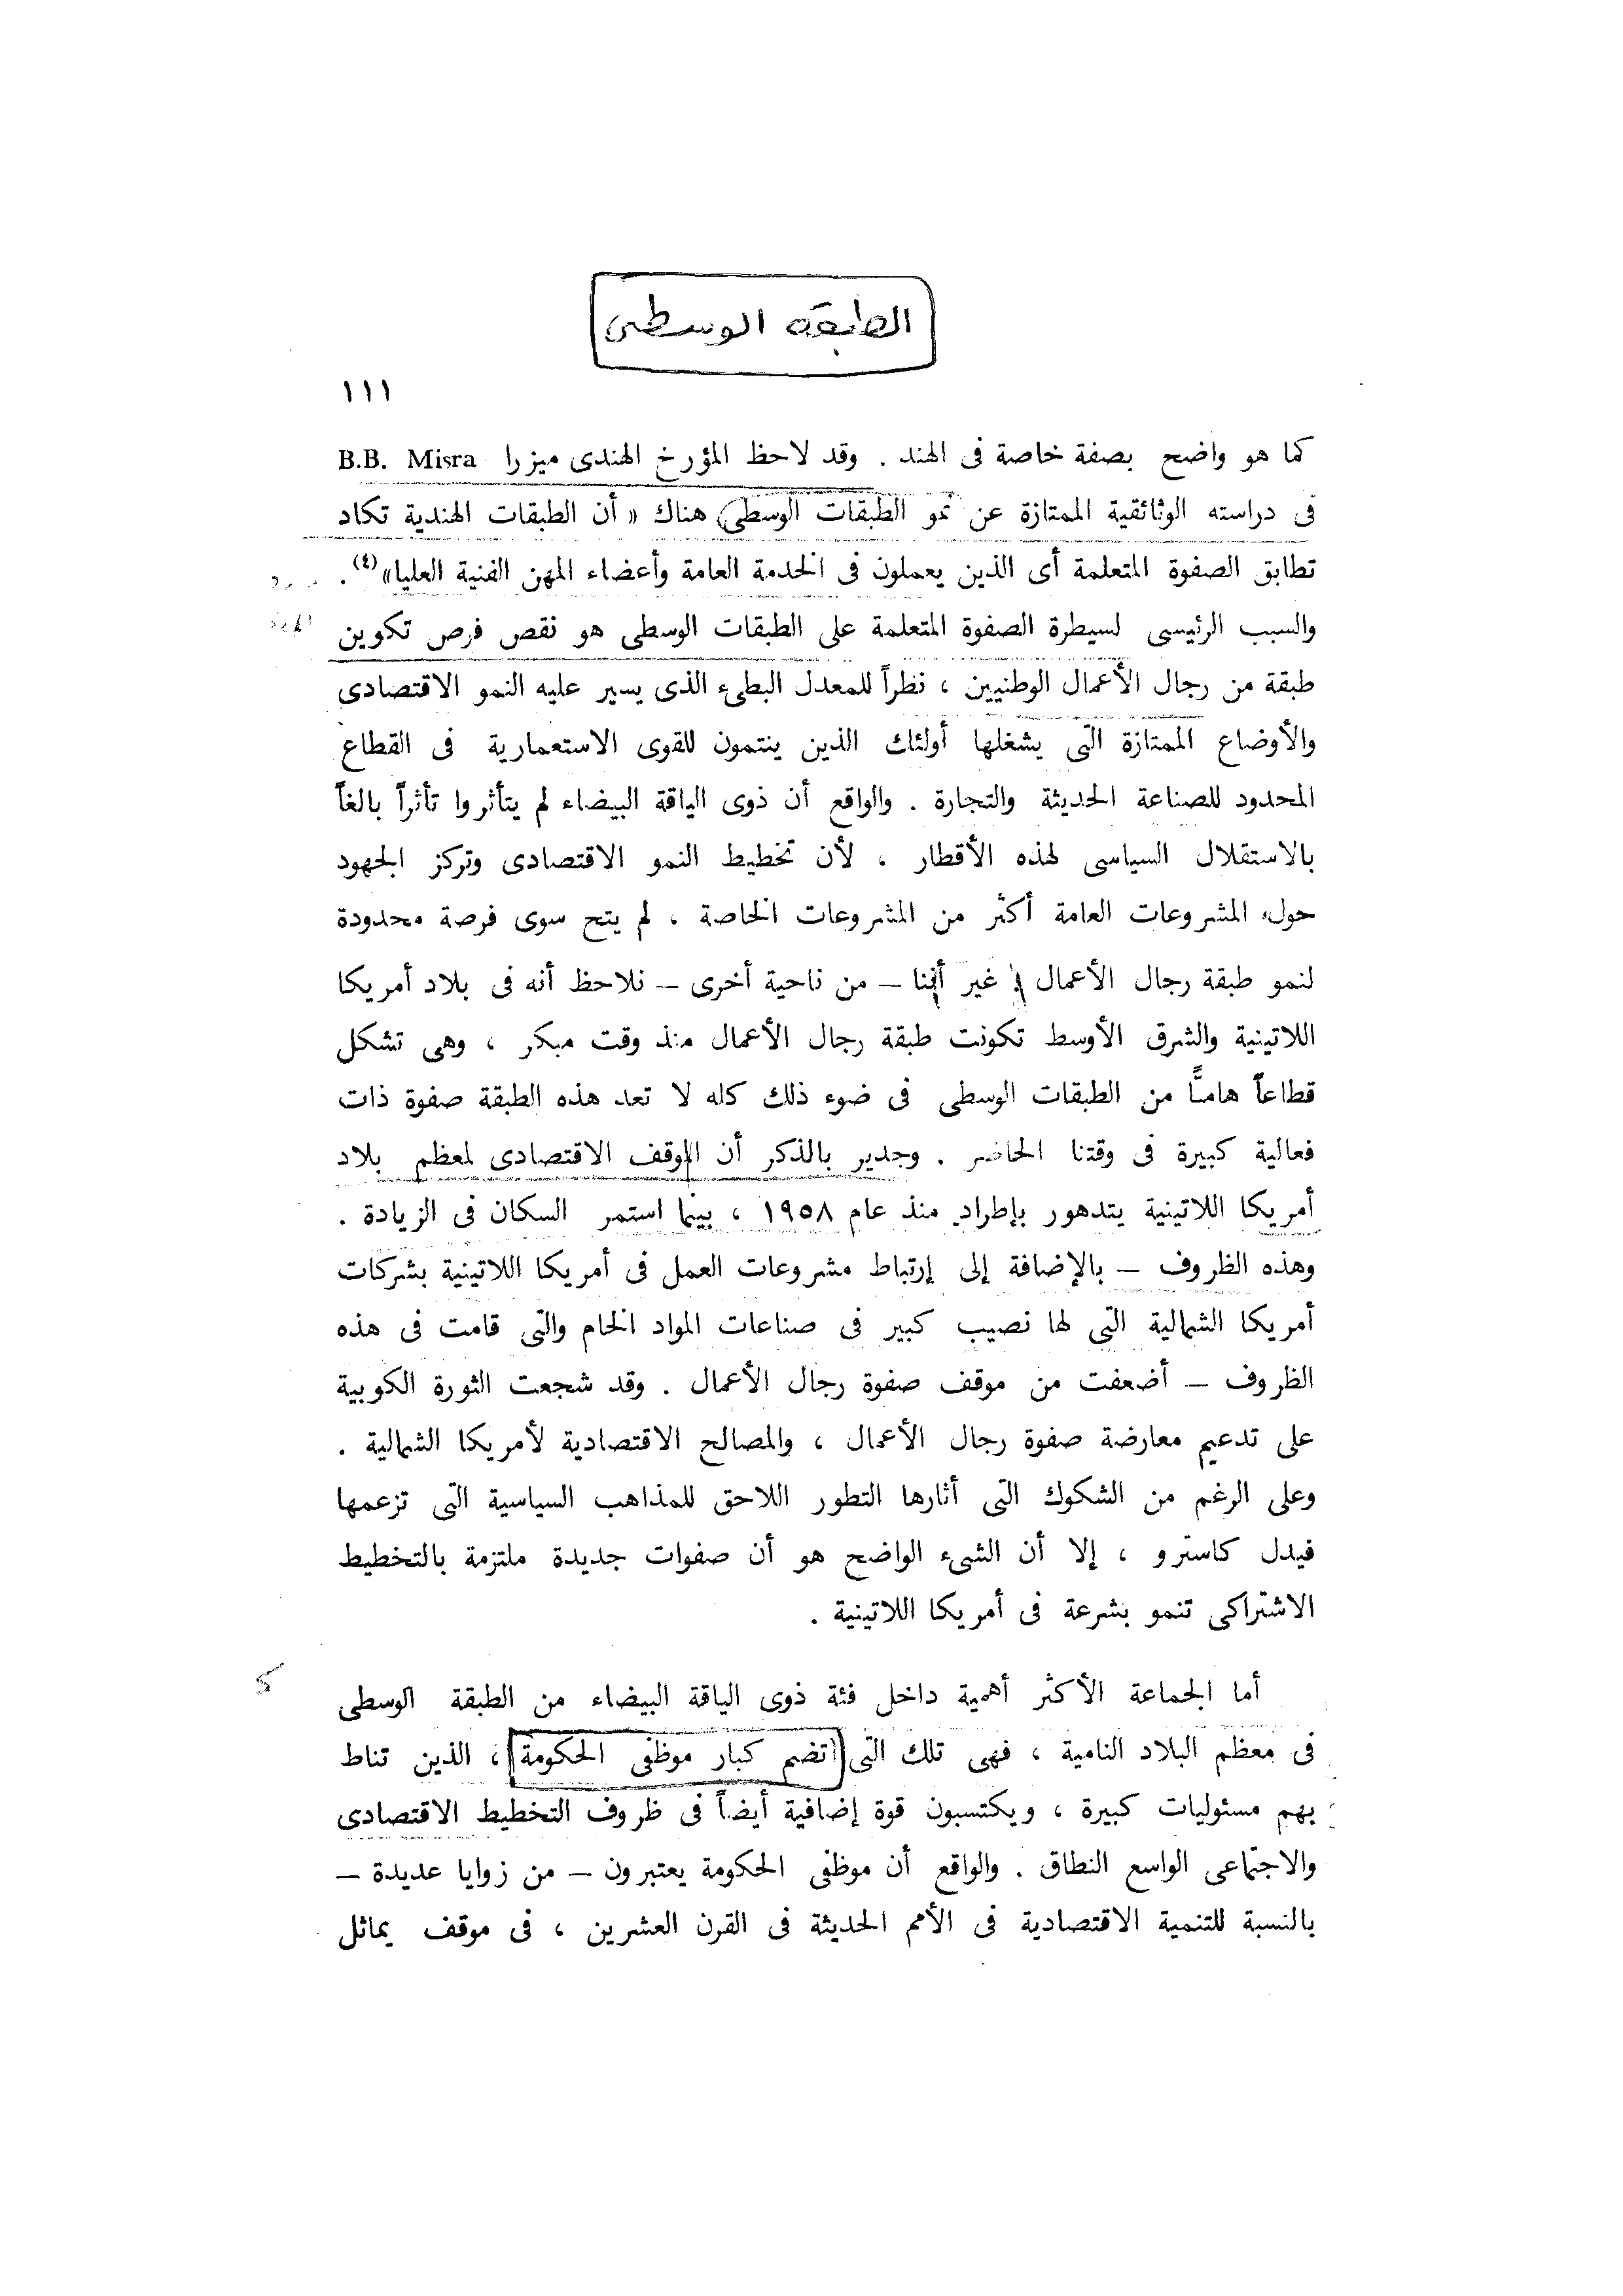 الطبقة الوسطى
١١١
كما هو واضح بصفة خاصة فى الهند . وقد لاحظ المؤرخ الهندى ميزرا B.B. Misra
فى دراسته الوثائقية الممتازة عن نمو الطبقات الوسطى هناك « أن الطبقات الهندية تكاد
تطابق الصفوة المتعلمة أى الذين يعملون فى الخدمة العامة وأعضاء المهن الفنية العليا»(٤) .
والسبب الرئيسى لسيطرة الصفوة المتعلمة على الطبقات الوسطى هو نقص فرص تكوين
طبقة من رجال الأعمال الوطنيين ، نظراً للمعدل البطىء الذى يسير عليه النمو الاقتصادى
والأوضاع الممتازة التى يشغلها أولئك الذين ينتمون للقوى الاستعمارية فى القطاع
المحدود للصناعة الحديثة والتجارة . والواقع أن ذوى الياقة البيضاء لم يتأثروا تأثراً بالغاً
بالاستقلال السياسى لهذه الأقطار ، لأن تخطيط النمو الاقتصادى وتركز الجهود
حول المشروعات العامة أكثر من المشروعات الخاصة ، لم يتح سوى فرصة محدودة
لنمو طبقة رجال الأعمال . غير أننا – من ناحية أخرى – نلاحظ أنه فى بلاد أمريكا
اللاتينية والشرق الأوسط تكونت طبقة رجال الأعمال منذ وقت مبكر ، وهى تشكل
قطاعاً هامًّا من الطبقات الوسطى فى ضوء ذلك كله لا تعد هذه الطبقة صفوة ذات
فعالية كبيرة فى وقتنا الحاضر . وجدير بالذكر أن الموقف الاقتصادى لمعظم بلاد
أمريكا اللاتينية يتدهور بإطراد منذ عام ١٩٥٨ ، بينما استمر السكان فى الزيادة .
وهذه الظروف – بالإضافة إلى إرتباط مشروعات العمل فى أمريكا اللاتينية بشركات
أمريكا الشمالية التى لها نصيب كبير فى صناعات المواد الخام والتى قامت فى هذه
الظروف – أضعفت من موقف صفوة رجال الأعمال . وقد شجعت الثورة الكوبية
على تدعيم معارضة صفوة رجال الأعمال ، والمصالح الاقتصادية لأمريكا الشمالية .
وعلى الرغم من الشكوك التى أثارها التطور اللاحق للمذاهب السياسية التى تزعمها
فيدل كاسترو ، إلا أن الشىء الواضح هو أن صفوات جديدة ملتزمة بالتخطيط
الاشتراكى تنمو بشرعة فى أمريكا اللاتينية .
أما الجماعة الأكثر أهمية داخل فئة ذوى الياقة البيضاء من الطبقة الوسطى
فى معظم البلاد النامية ، فهى تلك التى تضم كبار موظفى الحكومة ، الذين تناط
بهم مسئوليات كبيرة ، ويكتسبون قوة إضافية أيضاً فى ظروف التخطيط الاقتصادى
والاجتماعى الواسع النطاق . والواقع أن موظفى الحكومة يعتبرون – من زوايا عديدة –
بالنسبة للتنمية الاقتصادية فى الأمم الحديثة فى القرن العشرين ، فى موقف يماثل